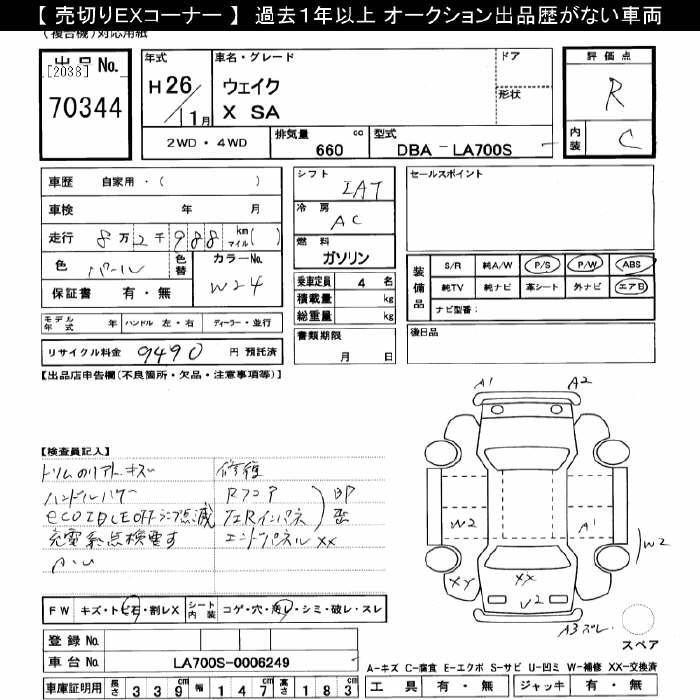 【 売切りEXコーナー 】 過去1年以上 オークション出品歴がない車両
(複合機)対応用紙
出品 No.
[2038]
70344
年式
H26/11月
車名・グレード
ウェイク
X SA
ドア
形状
評価点
R
内装
C
2WD・4WD
排気量 cc
660
型式
DBA - LA700S
車歴 自家用・( )
車検 年 月
走行 8万2千988 km マイル( )
色 パール
色替
カラーNo.
W24
保証書 有・無
モデル年式 年 ハンドル 左・右 ディーラー・並行
リサイクル料金 9490 円 預託済
シフト
IAT
冷房
AC
燃料
ガソリン
乗車定員 4 名
積載量 kg
総重量 kg
書類期限
月 日
セールスポイント
装備品
S/R 純A/W P/S P/W ABS
純TV 純ナビ 革シート 外ナビ エアB
ナビ型番:
後日品
【出品店申告欄(不良箇所・欠品・注意事項等)】
【検査員記入】
ハンドル
ecoIDLEOFFランプ点滅
充電系点検要す
修復
Rフロア
エンドパネル XX
A1
A2
W2
A1
W2
XY
XX
U2
A3 ズレ
スペア
FW キズ・トビ石・割レX シート内装 コゲ・穴・汚レ・シミ・破レ・スレ
登録 No.
車台 No. LA700S-0006249
車庫証明用 長さ 339 cm 幅 147 cm 高さ 183 cm
A-キズ C-腐食 E-エクボ S-サビ U-凹ミ W-補修 XX-交換済
工具 有・無 ジャッキ 有・無